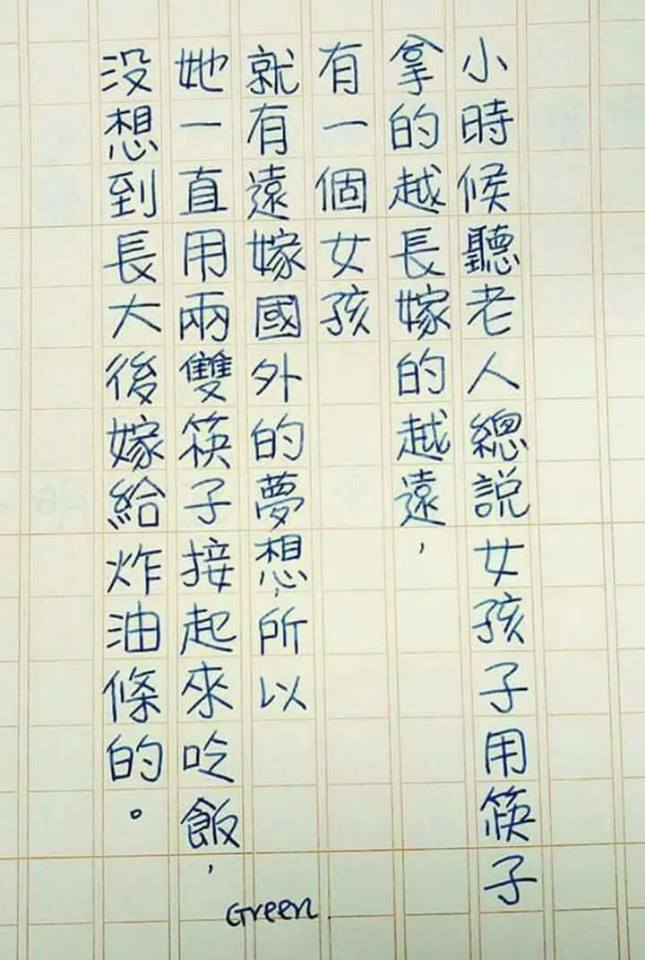 小時候聽老人總説女孩子用筷子
拿的越長嫁的越遠，
有一個女孩
就有遠嫁國外的夢想，所以
她一直用兩雙筷子接起來吃飯，
没想到長大後嫁給炸油條的。
Green